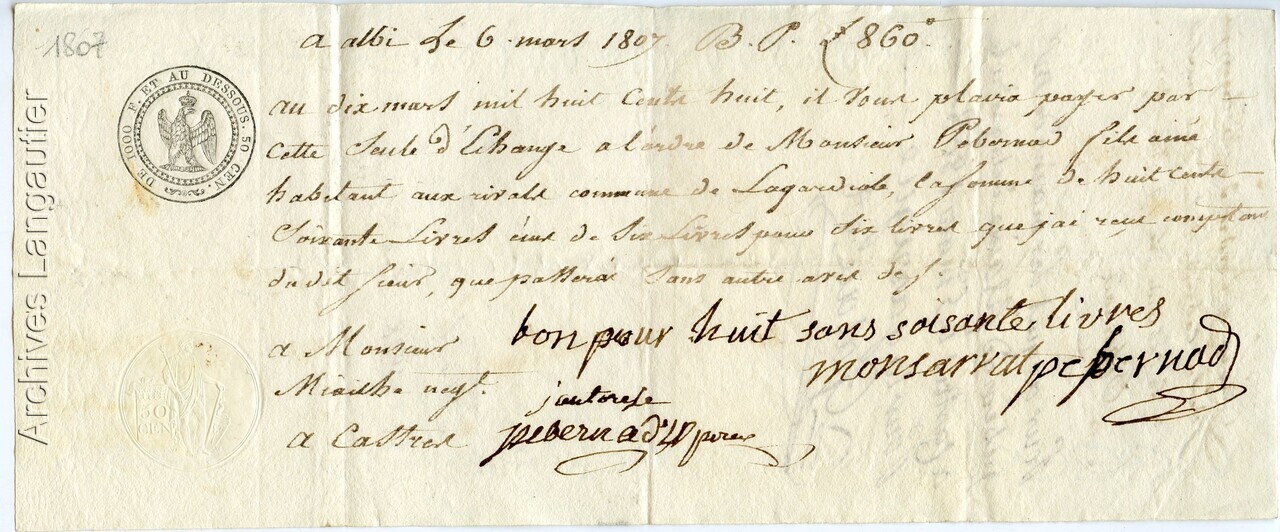 1807
Archives Langautier
DE 1000 F. ET AU DESSOUS. 50 CEN.
a albi Le 6 mars 1807. B. P. ₶ 860"
au dix mars mil huit Cents huit, il vous plaira payer par
Cette Seule d'Echange a l'ordre de Monsieur Pebernad fils ainé
habitant aux rivals commune de Lagardiole, la Somme de huit Cents
Soixante Livres écus de Six Livres pour Six livres que j'ai reçu comptan
du dit sieur, que passerai sans autre avis de
a Monsieur
Miailhe negt.
a Castres
bon pour huit sans soisante livres
monsarrat pebernad
j'autorise
pebernad
50